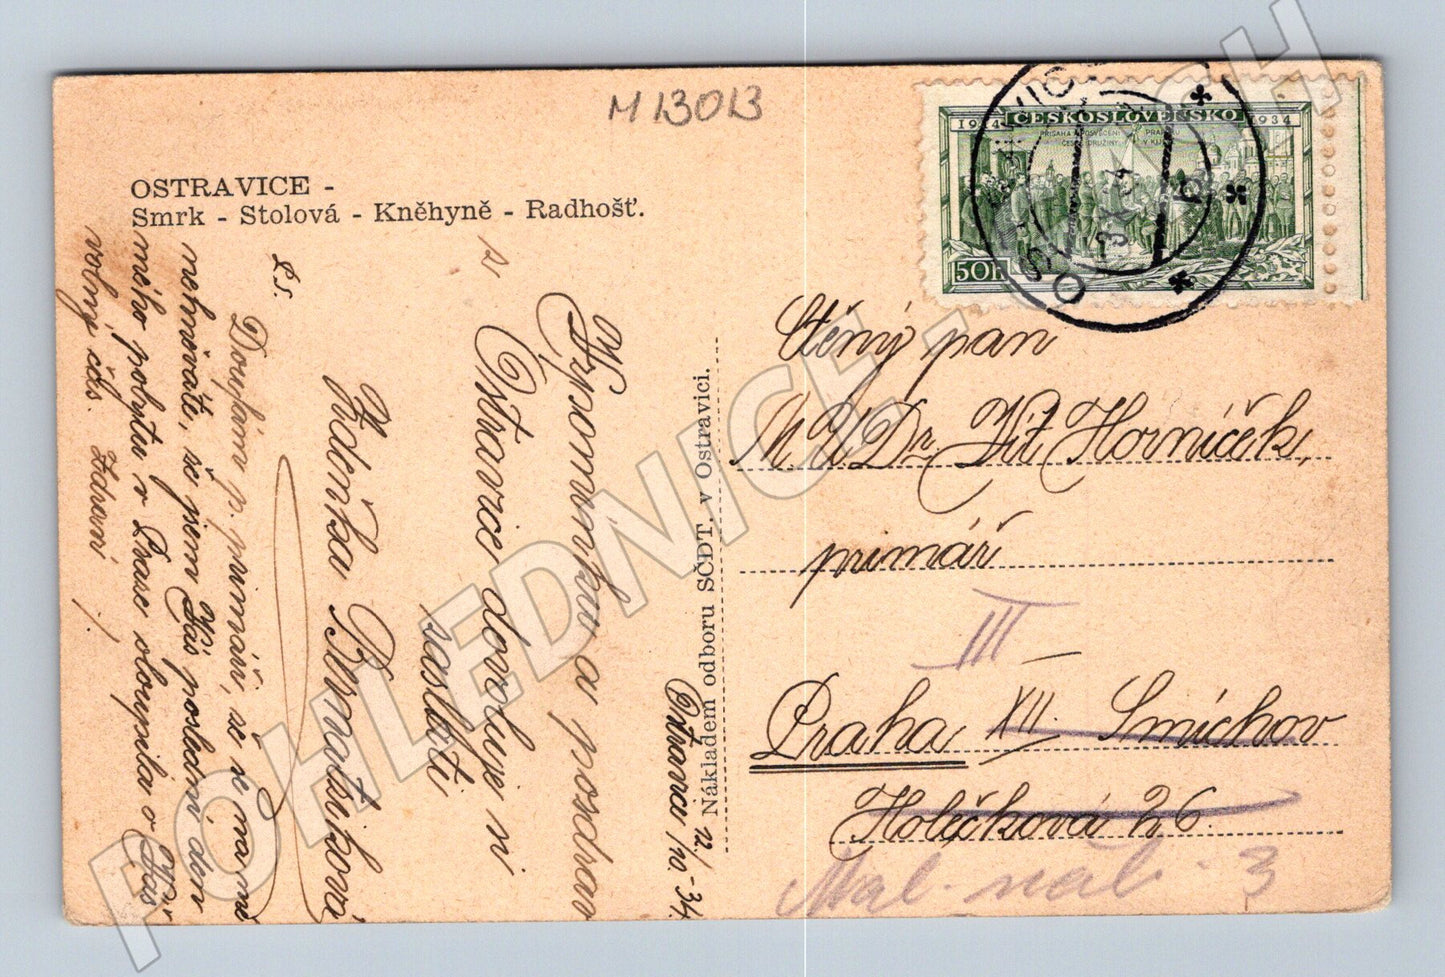 M 13013
OSTRAVICE -
Smrk - Stolová - Kněhyně - Radhošť.
1914 ČESKOSLOVENSKO 1934
PŘÍSAHA A POSVĚCENÍ PRAPORU
ČESKÉ DRUŽINY V KIJEVĚ
50H
OSTRAVICE
3 X 34
Nákladem odboru SČDT. v Ostravici.
Ostravice 12/10. -34
Vzpomínku a pozdrav
z Ostravice dovoluje si
zaslati
Zdeňka
L.S.
Doufám p. primáři, že se na mě
nehněváte, že jsem Váš poslední den
mého pobytu v Praze oloupila o Váš
volný čas. Zdraví
Ctěný pan
MUDr. Vít Horníček,
primář
III
Praha XII. Smíchov
Holečkova 26.
Mal. nám. 3
POHLEDNICE-